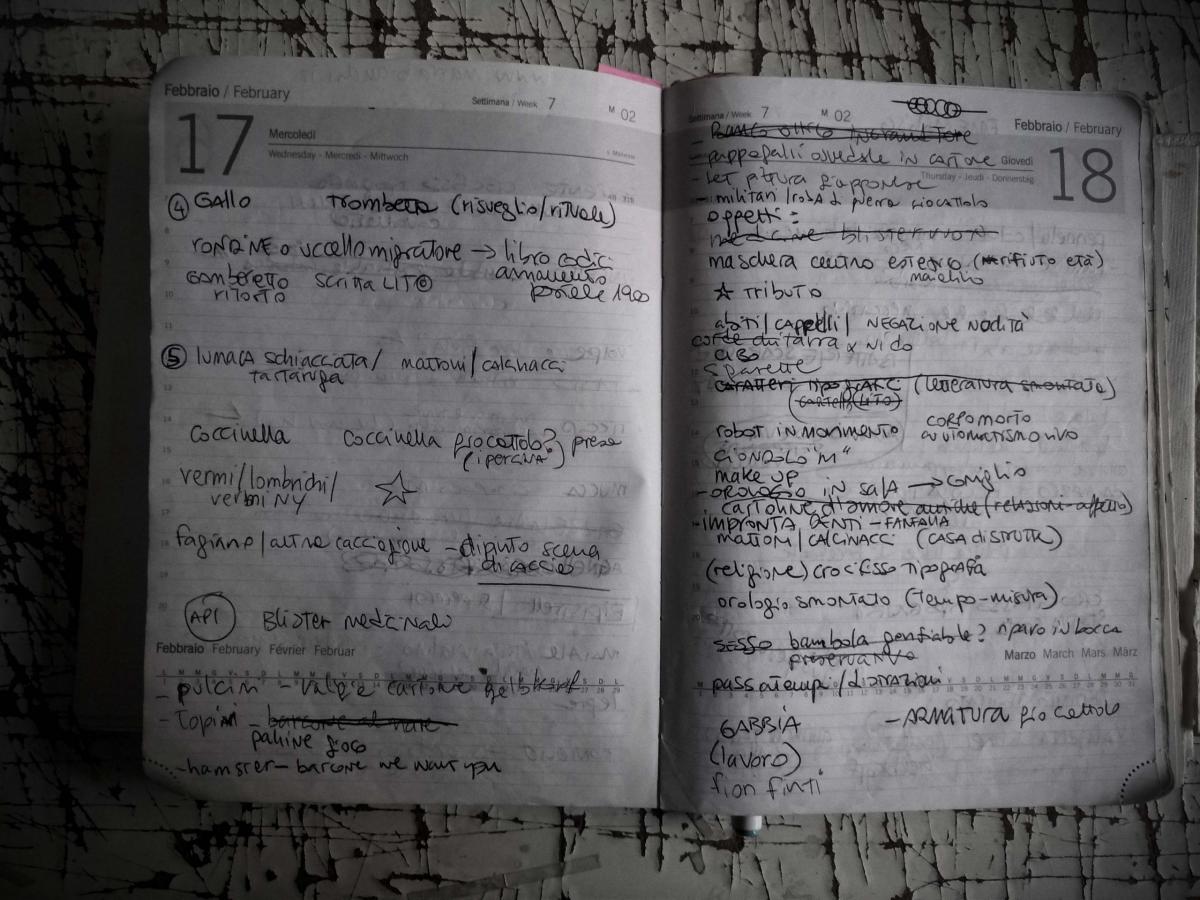 Febbraio / February
Settimana / Week 7
M 02
17
Mercoledì
Wednesday - Mercredi - Mittwoch
④ GALLO trombetta (risveglio/rituale)
RONDINE o uccello migratore → libro codic
Gamberetto scritta LITO
ritorto 1900
⑤ lumaca schiacciata/ mattoni/calcinacci
tartaruga
coccinella coccinella giocattolo?
vermi/lombrichi/
vermi NY
fagiano/altra cacciagione - dipinto scena
di caccia
API Blister medicinali
Febbraio February Février Februar
- pulcini - valigia cartone
- Topini - barcone al mare
palline gioco
- hamster - barcone we want you
Settimana / Week 7
M 02
Febbraio / February
Giovedì
Thursday - Jeudi - Donnerstag
18
- pappagalli ospedale in cartone
- set pittura giapponese
- militari / rosa di pietra giocattolo
oggetti:
medicine blister vuoti
maschera centro estetico (rifiuto età)
☆ TRIBUTO
abiti/cappelli/ NEGAZIONE NUDITÀ
corde chitarra x nido
CIBO
caratteri tipografic (letteratura smontata)
(cartello LITO)
robot in movimento corpo morto
automatismo vivo
CIONDOLO "M"
make up
- OROLOGIO IN SALA → coniglio
cartoline d'amore antiche (relazioni-affetto)
- IMPRONTA DENTI - FANFALIA
MATTONI/CALCINACCI (CASA DISTRUTTA)
(religione) crocifisso tipografia
orologio smontato (tempo-misura)
SESSO bambola gonfiabile?
preservativo
Marzo March Mars März
passatempi/distrazioni
GABBIA - ARMATURA giocattolo
(lavoro)
fiori finti